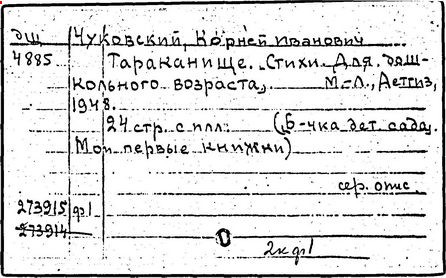 дш Чуковский, Корней Иванович
4885 Тараканище. Стихи. Для дош-
кольного возраста. М.-Л., Детгиз,
1948.
24 стр. с илл. (Б-чка дет. сада.
Мои первые книжки)
сер. опис.
273915 ф1
273914
2к ф1